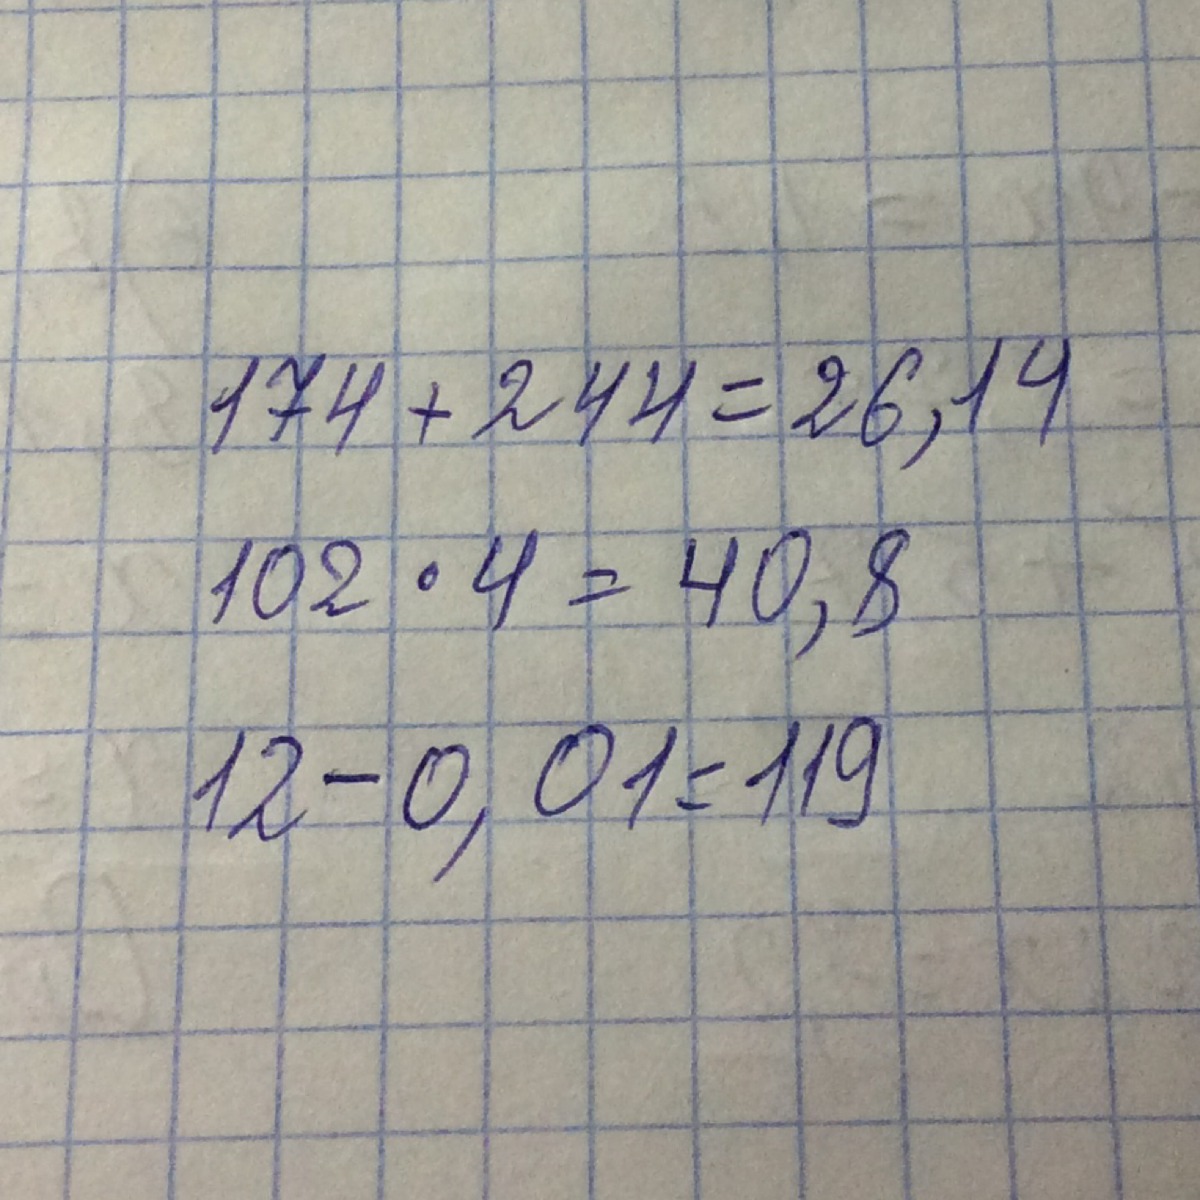 174 + 244 = 26,14
102 · 4 = 40,8
12 - 0, 01 = 119